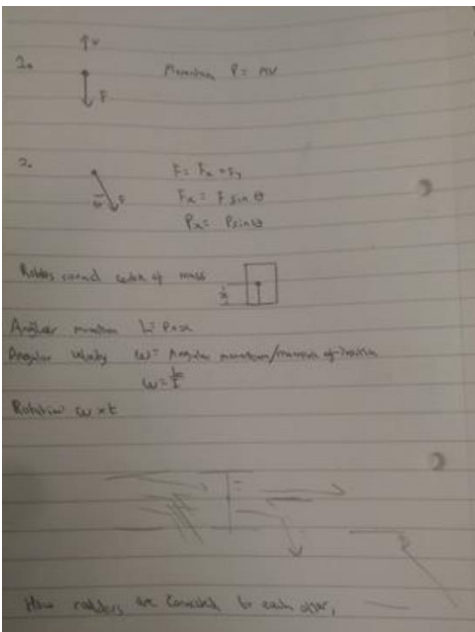 1.
V
F
Momentum P = MV
2.
F
F = Fx + Fy
Fx = F sin θ
Px = P sin θ
Rotates round centre of mass
Angular momentum
Angular velocity ω = Angular momentum/moment of inertia
ω =
Rotation = ω × t
How rudders are connected to each other,